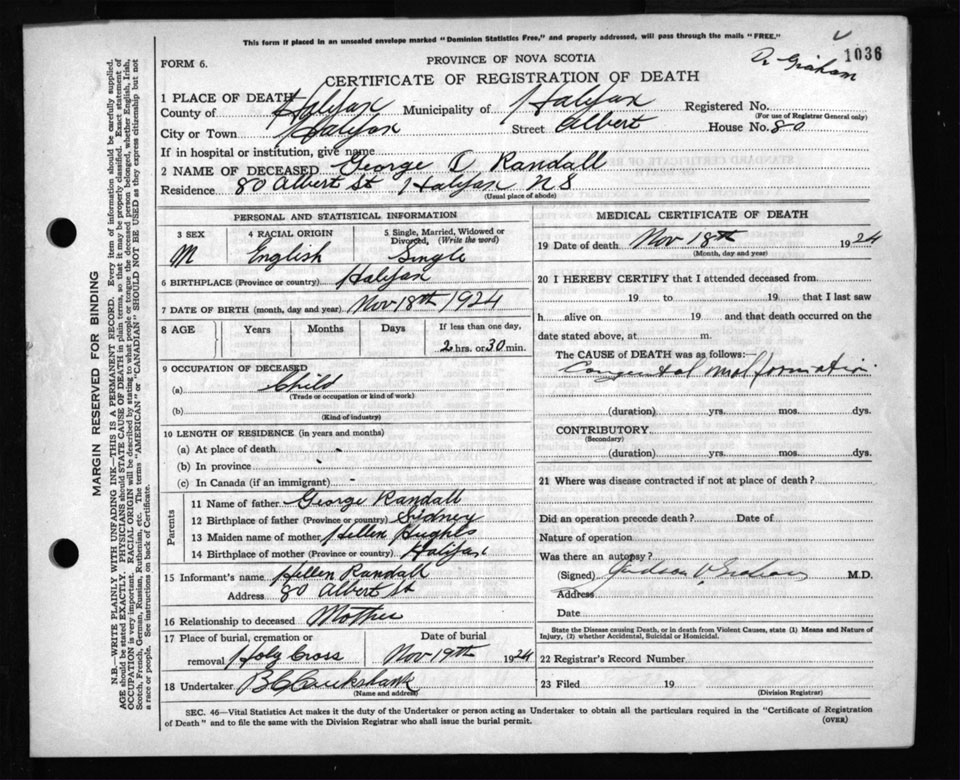 This form if placed in an unsealed envelope marked "Dominion Statistics Free," and properly addressed, will pass through the mails "FREE."
FORM 6.
PROVINCE OF NOVA SCOTIA
Dr Graham
1036
CERTIFICATE OF REGISTRATION OF DEATH
1 PLACE OF DEATH
County of Halifax Municipality of Halifax Registered No.
(For use of Registrar General only)
City or Town Halifax Street Albert House No. 80
If in hospital or institution, give name
2 NAME OF DECEASED George O Randall
Residence 80 Albert St Halifax N S
(Usual place of abode)
PERSONAL AND STATISTICAL INFORMATION
3 SEX 4 RACIAL ORIGIN 5 Single, Married, Widowed or Divorced, (Write the word)
M English Single
6 BIRTHPLACE (Province or country) Halifax
7 DATE OF BIRTH (month, day and year) Nov 18th 1924
8 AGE Years Months Days If less than one day,
2 hrs. or 30 min.
9 OCCUPATION OF DECEASED
(a) Child
(Trade or occupation or kind of work)
(b)
(Kind of industry)
10 LENGTH OF RESIDENCE (in years and months)
(a) At place of death
(b) In province -
(c) In Canada (if an immigrant) -
Parents
11 Name of father George Randall
12 Birthplace of father (Province or country) Sidney
13 Maiden name of mother Hellen Hughes
14 Birthplace of mother (Province or country) Halifax
15 Informant's name Hellen Randall
Address 80 Albert St
16 Relationship to deceased Mother
17 Place of burial, cremation or removal Holy Cross Date of burial Nov 19th 1924
18 Undertaker B C Cruikshank
(Name and address)
MEDICAL CERTIFICATE OF DEATH
19 Date of death Nov 18th 1924
(Month, day and year)
20 I HEREBY CERTIFY that I attended deceased from
19 to 19 that I last saw
h alive on 19 and that death occurred on the
date stated above, at m.
The CAUSE of DEATH was as follows:
Congenital malformation
(duration) yrs. mos. dys.
CONTRIBUTORY
(Secondary)
(duration) yrs. mos. dys.
21 Where was disease contracted if not at place of death?
Did an operation precede death? Date of
Nature of operation
Was there an autopsy?
(Signed) Judson V Graham M.D.
Address
Date
State the Disease causing Death, or in death from Violent Causes, state (1) Means and Nature of Injury, (2) whether Accidental, Suicidal or Homicidal.
22 Registrar's Record Number
23 Filed 19
(Division Registrar)
SEC. 46—Vital Statistics Act makes it the duty of the Undertaker or person acting as Undertaker to obtain all the particulars required in the "Certificate of Registration
of Death" and to file the same with the Division Registrar who shall issue the burial permit.
(OVER)
MARGIN RESERVED FOR BINDING
N.B.—WRITE PLAINLY WITH UNFADING INK—THIS IS A PERMANENT RECORD. Every item of information should be carefully supplied.
AGE should be stated EXACTLY. PHYSICIANS should STATE CAUSE OF DEATH in plain terms, so that it may be properly classified. Exact statement of
OCCUPATION is very important. RACIAL ORIGIN will be described by stating to what people or tongue the deceased person belonged, whether English, Irish,
Scotch, French, German, Russian, Ruthenian, etc. The terms "AMERICAN" or "CANADIAN" SHOULD NOT BE USED as they express citizenship but not
a race or people. See instructions on back of Certificate.